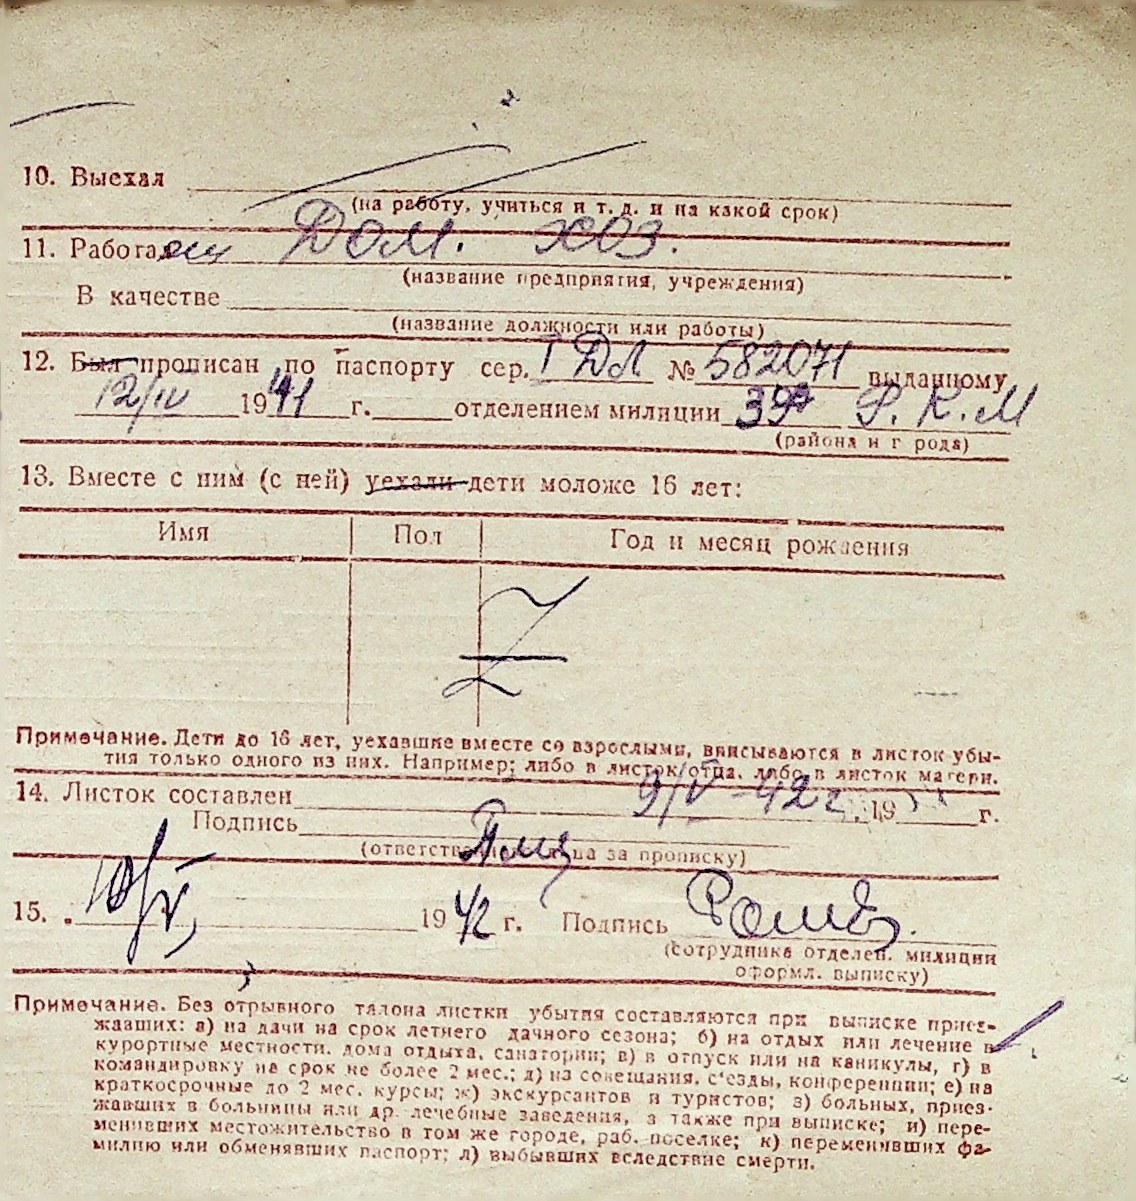 10. Выехал
(на работу, учиться и т. д. и на какой срок)
11. Работает Дом. хоз.
(название предприятия, учреждения)
В качестве
(название должности или работы)
12. Был прописан по паспорту сер. I ДЛ № 582071 выданному
12/IV 1941 г. отделением милиции 39 Р. К. М
(района и г рода)
13. Вместе с ним (с ней) уехали дети моложе 16 лет:
Имя Пол Год и месяц рождения
Z
Примечание. Дети до 16 лет, уехавшие вместе со взрослыми, вписываются в листок убы-
тия только одного из них. Например; либо в листок отца, либо в листок матери.
14. Листок составлен 9/V-42 г. 19 г.
Подпись
(ответственного лица за прописку)
15. 10/V 1942 г. Подпись
(сотрудника отделен. милиции
оформл. выписку)
Примечание. Без отрывного талона листки убытия составляются при выписке приез-
жавших: а) на дачи на срок летнего дачного сезона; б) на отдых или лечение в
курортные местности, дома отдыха, санатории; в) в отпуск или на каникулы, г) в
командировку не срок не более 2 мес.; д) на совещания, с'езды, конференции; е) на
краткосрочные до 2 мес. курсы; ж) экскурсантов и туристов; з) больных, приез-
жавших в больницы или др. лечебные заведения, а также при выписке; и) пере-
менивших местожительство в том же городе, раб. поселке; к) переменивших фа-
милию или обменявших паспорт; л) выбывших вследствие смерти.